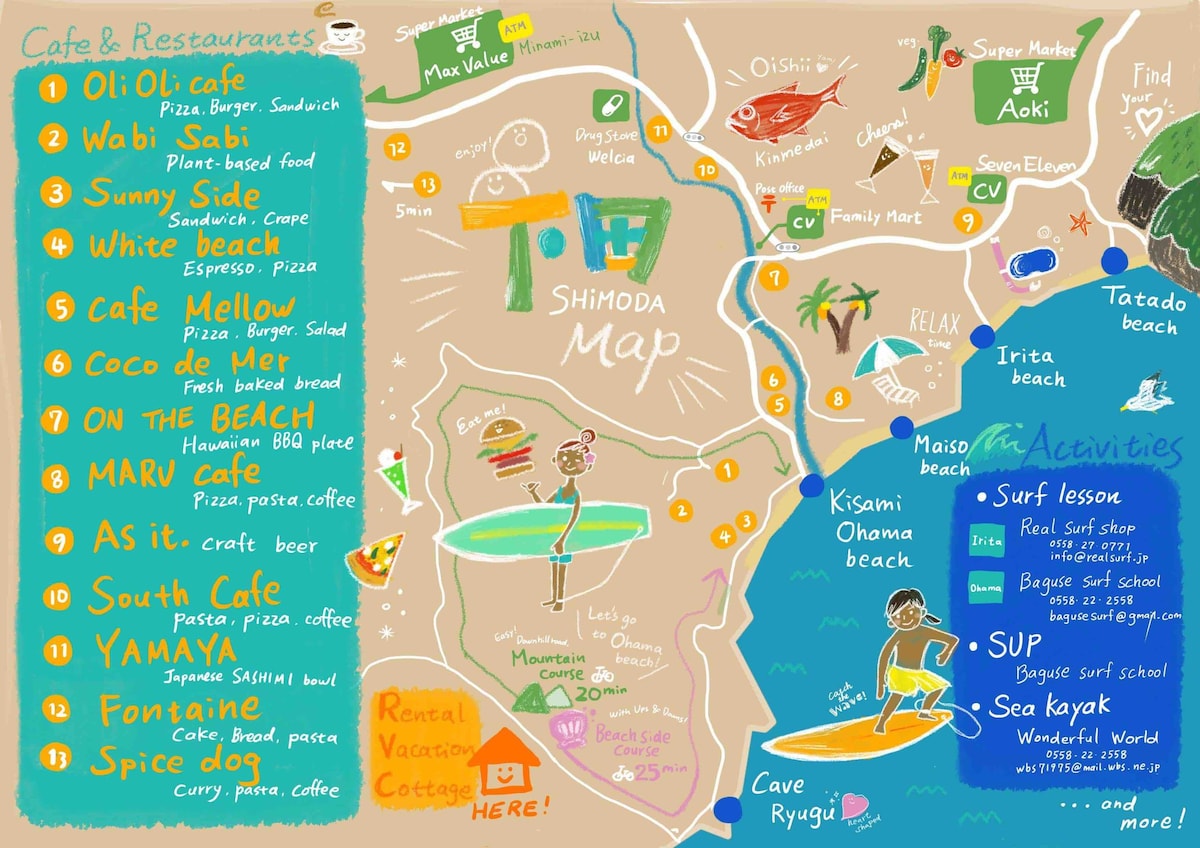 Cafe & Restaurants
1 Oli Oli cafe
Pizza, Burger, Sandwich
2 Wabi Sabi
Plant-based food
3 Sunny Side
Sandwich, Crape
4 White beach
Espresso, Pizza
5 Cafe Mellow
Pizza, Burger, Salad
6 Coco de Mer
Fresh baked bread
7 ON THE BEACH
Hawaiian BBQ plate
8 MARU cafe
Pizza, pasta, coffee
9 As it. Craft beer
10 South Cafe
Pasta, pizza, coffee
11 YAMAYA
Japanese SASHIMI bowl
12 Fontaine
Cake, Bread, pasta
13 Spice dog
Curry, pasta, coffee
Super Market
ATM
Max Value
Minami-izu
Drug Store
Welcia
11
12
13
5min
10
enjoy!
下田
SHiMODA
Map
Oishii
Kinmedai
veg.
Super Market
Aoki
Cheers!
Find
your
Seven Eleven
ATM
CV
Post office
ATM
CV
Family Mart
9
7
RELAX
time
6
5
8
Tatado
beach
Irita
beach
Maiso
beach
Kisami
Ohama
beach
Eat me!
1
2
3
4
Let's go
to Ohama
beach!
Easy! Downhill road.
Mountain
course
20min
with Ups & Downs!
Beach side
course
25min
Rental
Vacation
Cottage
HERE!
Cave
Ryugu
heart
shaped
catch
the
wave!
Activities
• Surf lesson
Irita
Real surf shop
0558-27 0771
info@realsurf.jp
Ohama
Baguse surf school
0558-22-2558
bagusesurf@gmail.com
• SUP
Baguse surf school
• Sea kayak
Wonderful World
0558-22-2558
wbs71975@mail.wbs.ne.jp
... and
more!